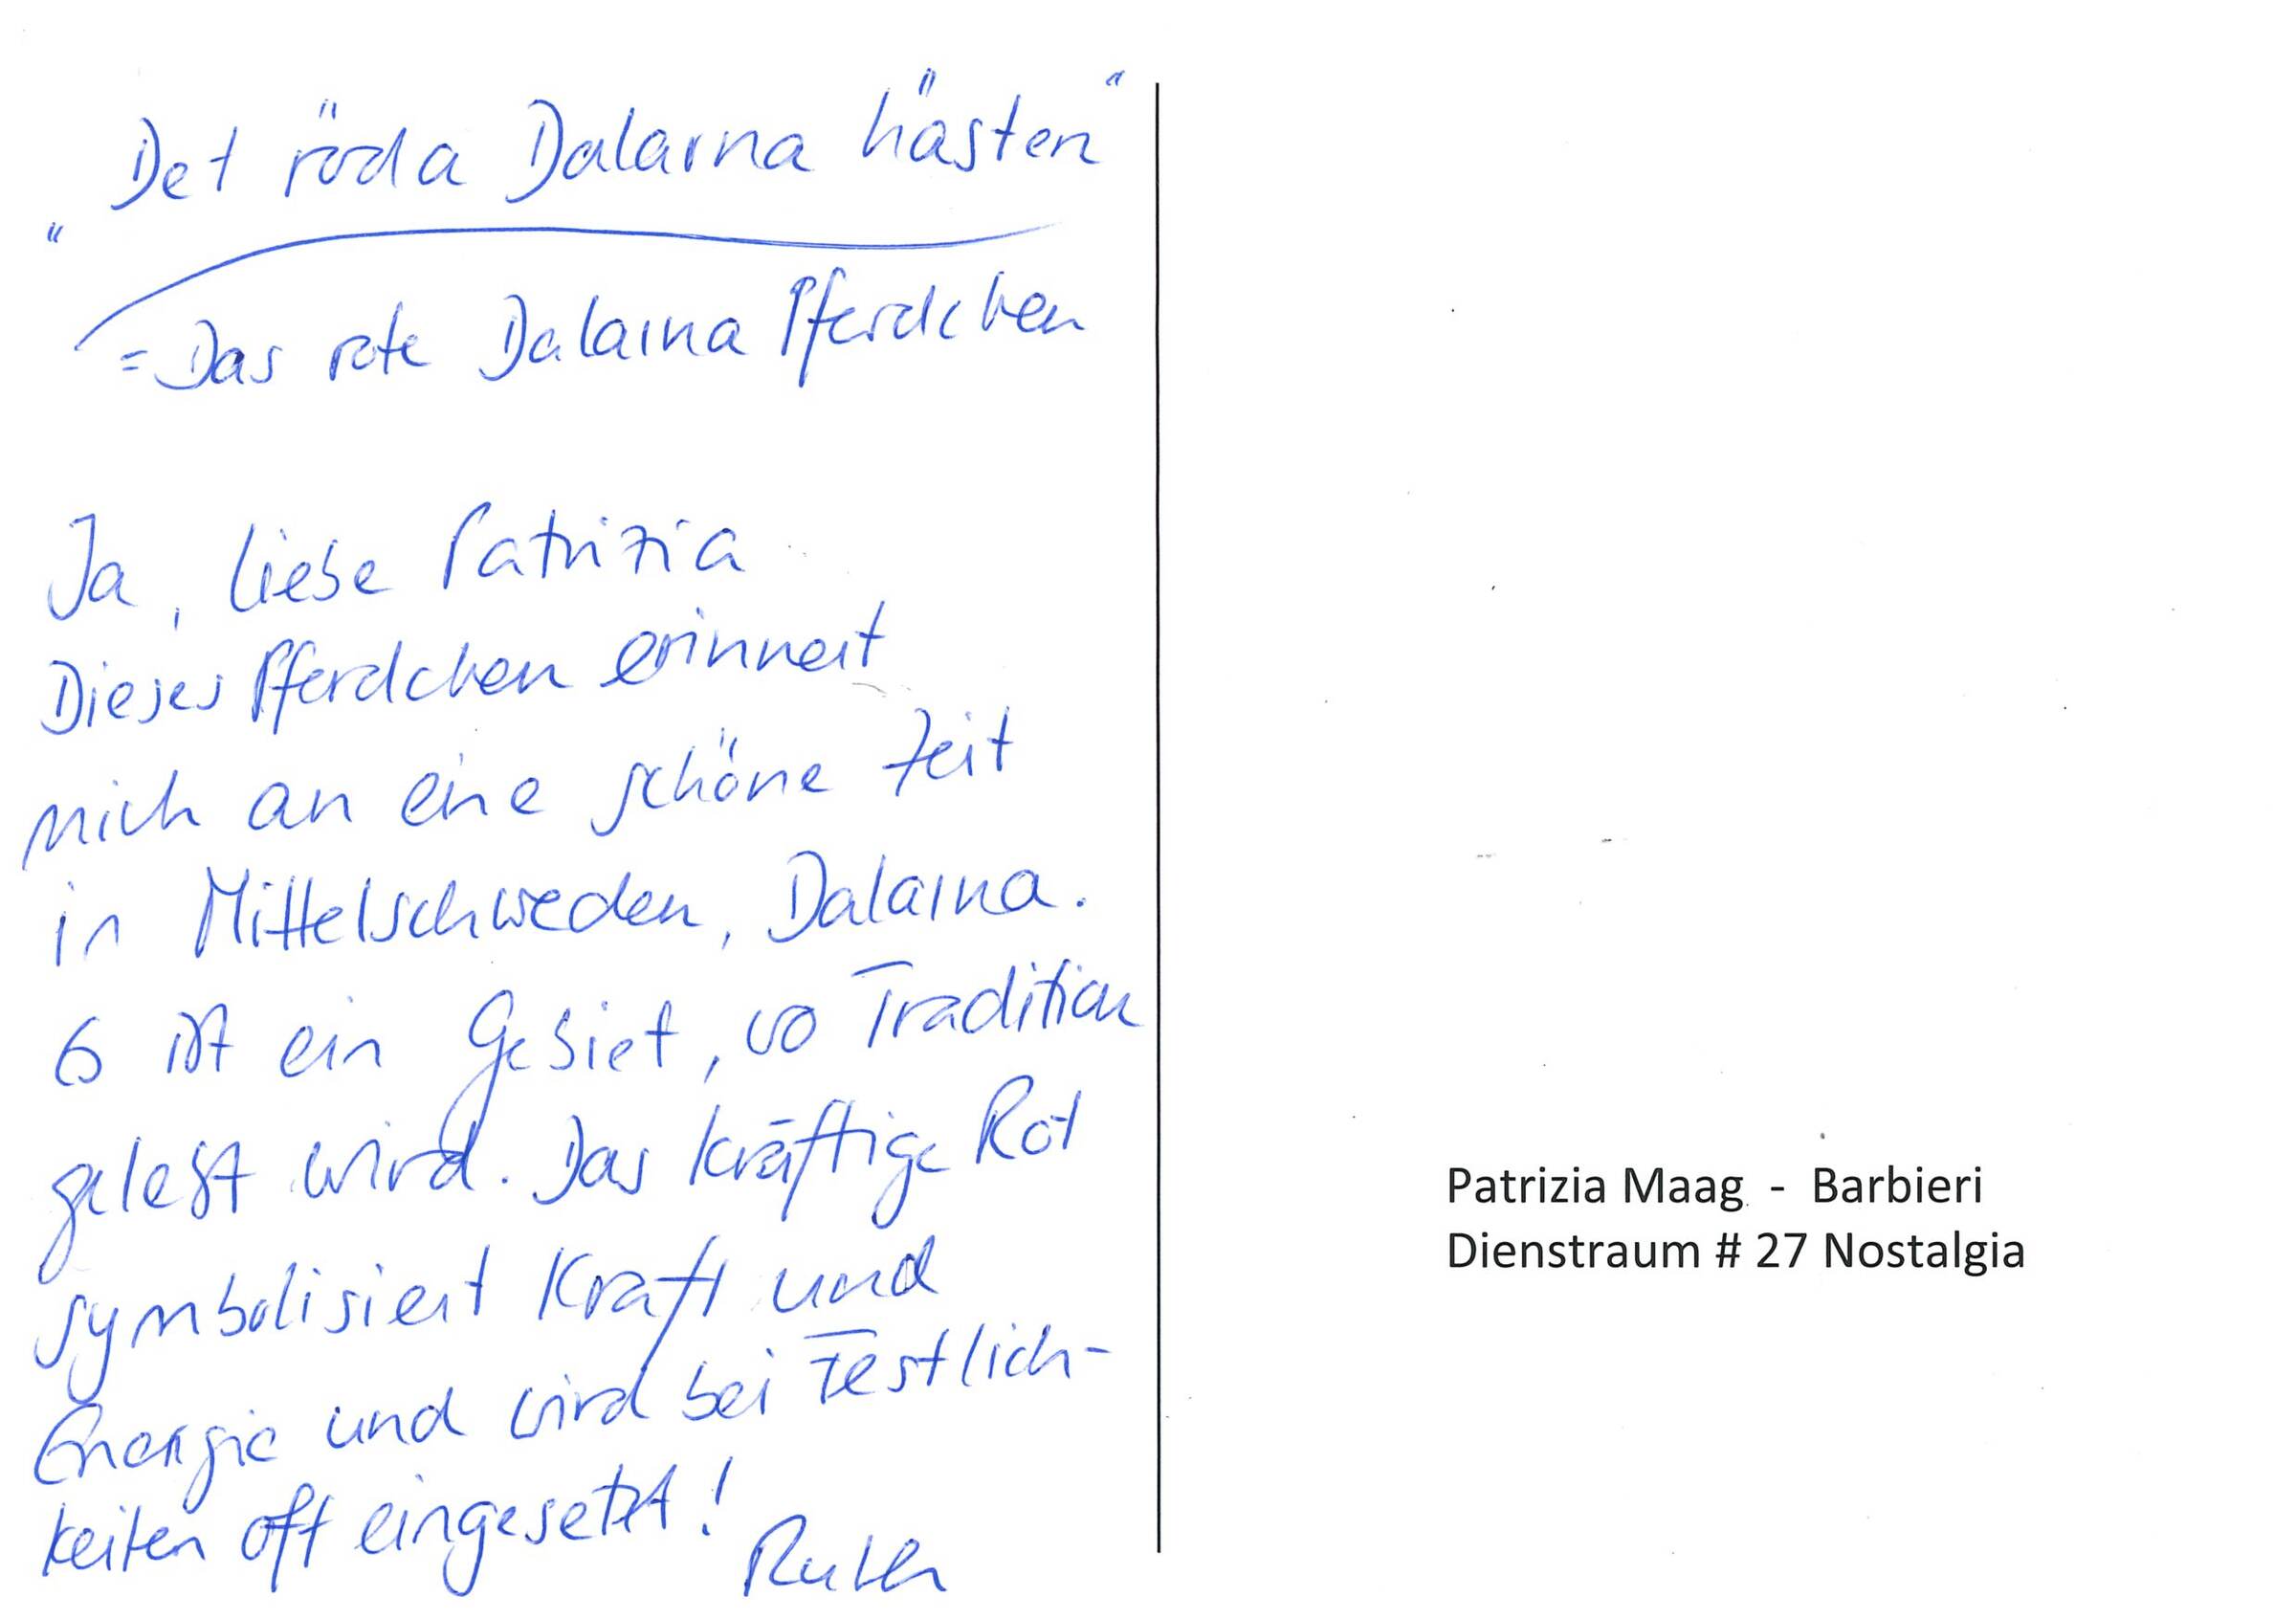 "Det röda Dalarna hästen"
= Das rote Dalarna Pferdchen
Ja, liebe Patrizia
Dieses Pferdchen erinnert
mich an eine schöne Zeit
in Mittelschweden, Dalarna.
Es ist ein Gebiet, wo Tradition
gelebt wird. Das kräftige Rot
symbolisiert Kraft und
Energie und wird bei Festlich-
keiten oft eingesetzt!
Ruth
Patrizia Maag - Barbieri
Dienstraum # 27 Nostalgia